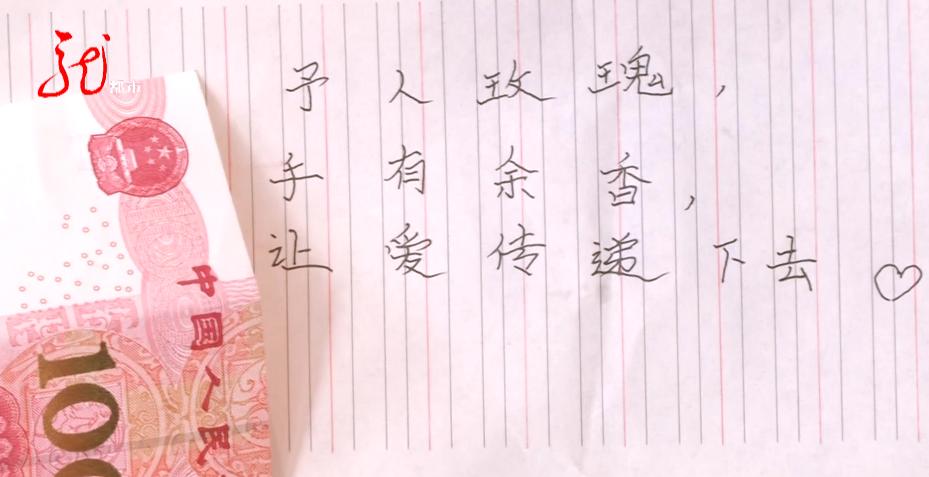 龙
都市
予人玫瑰，
手有余香，
让爱传递下去
中国人民
100